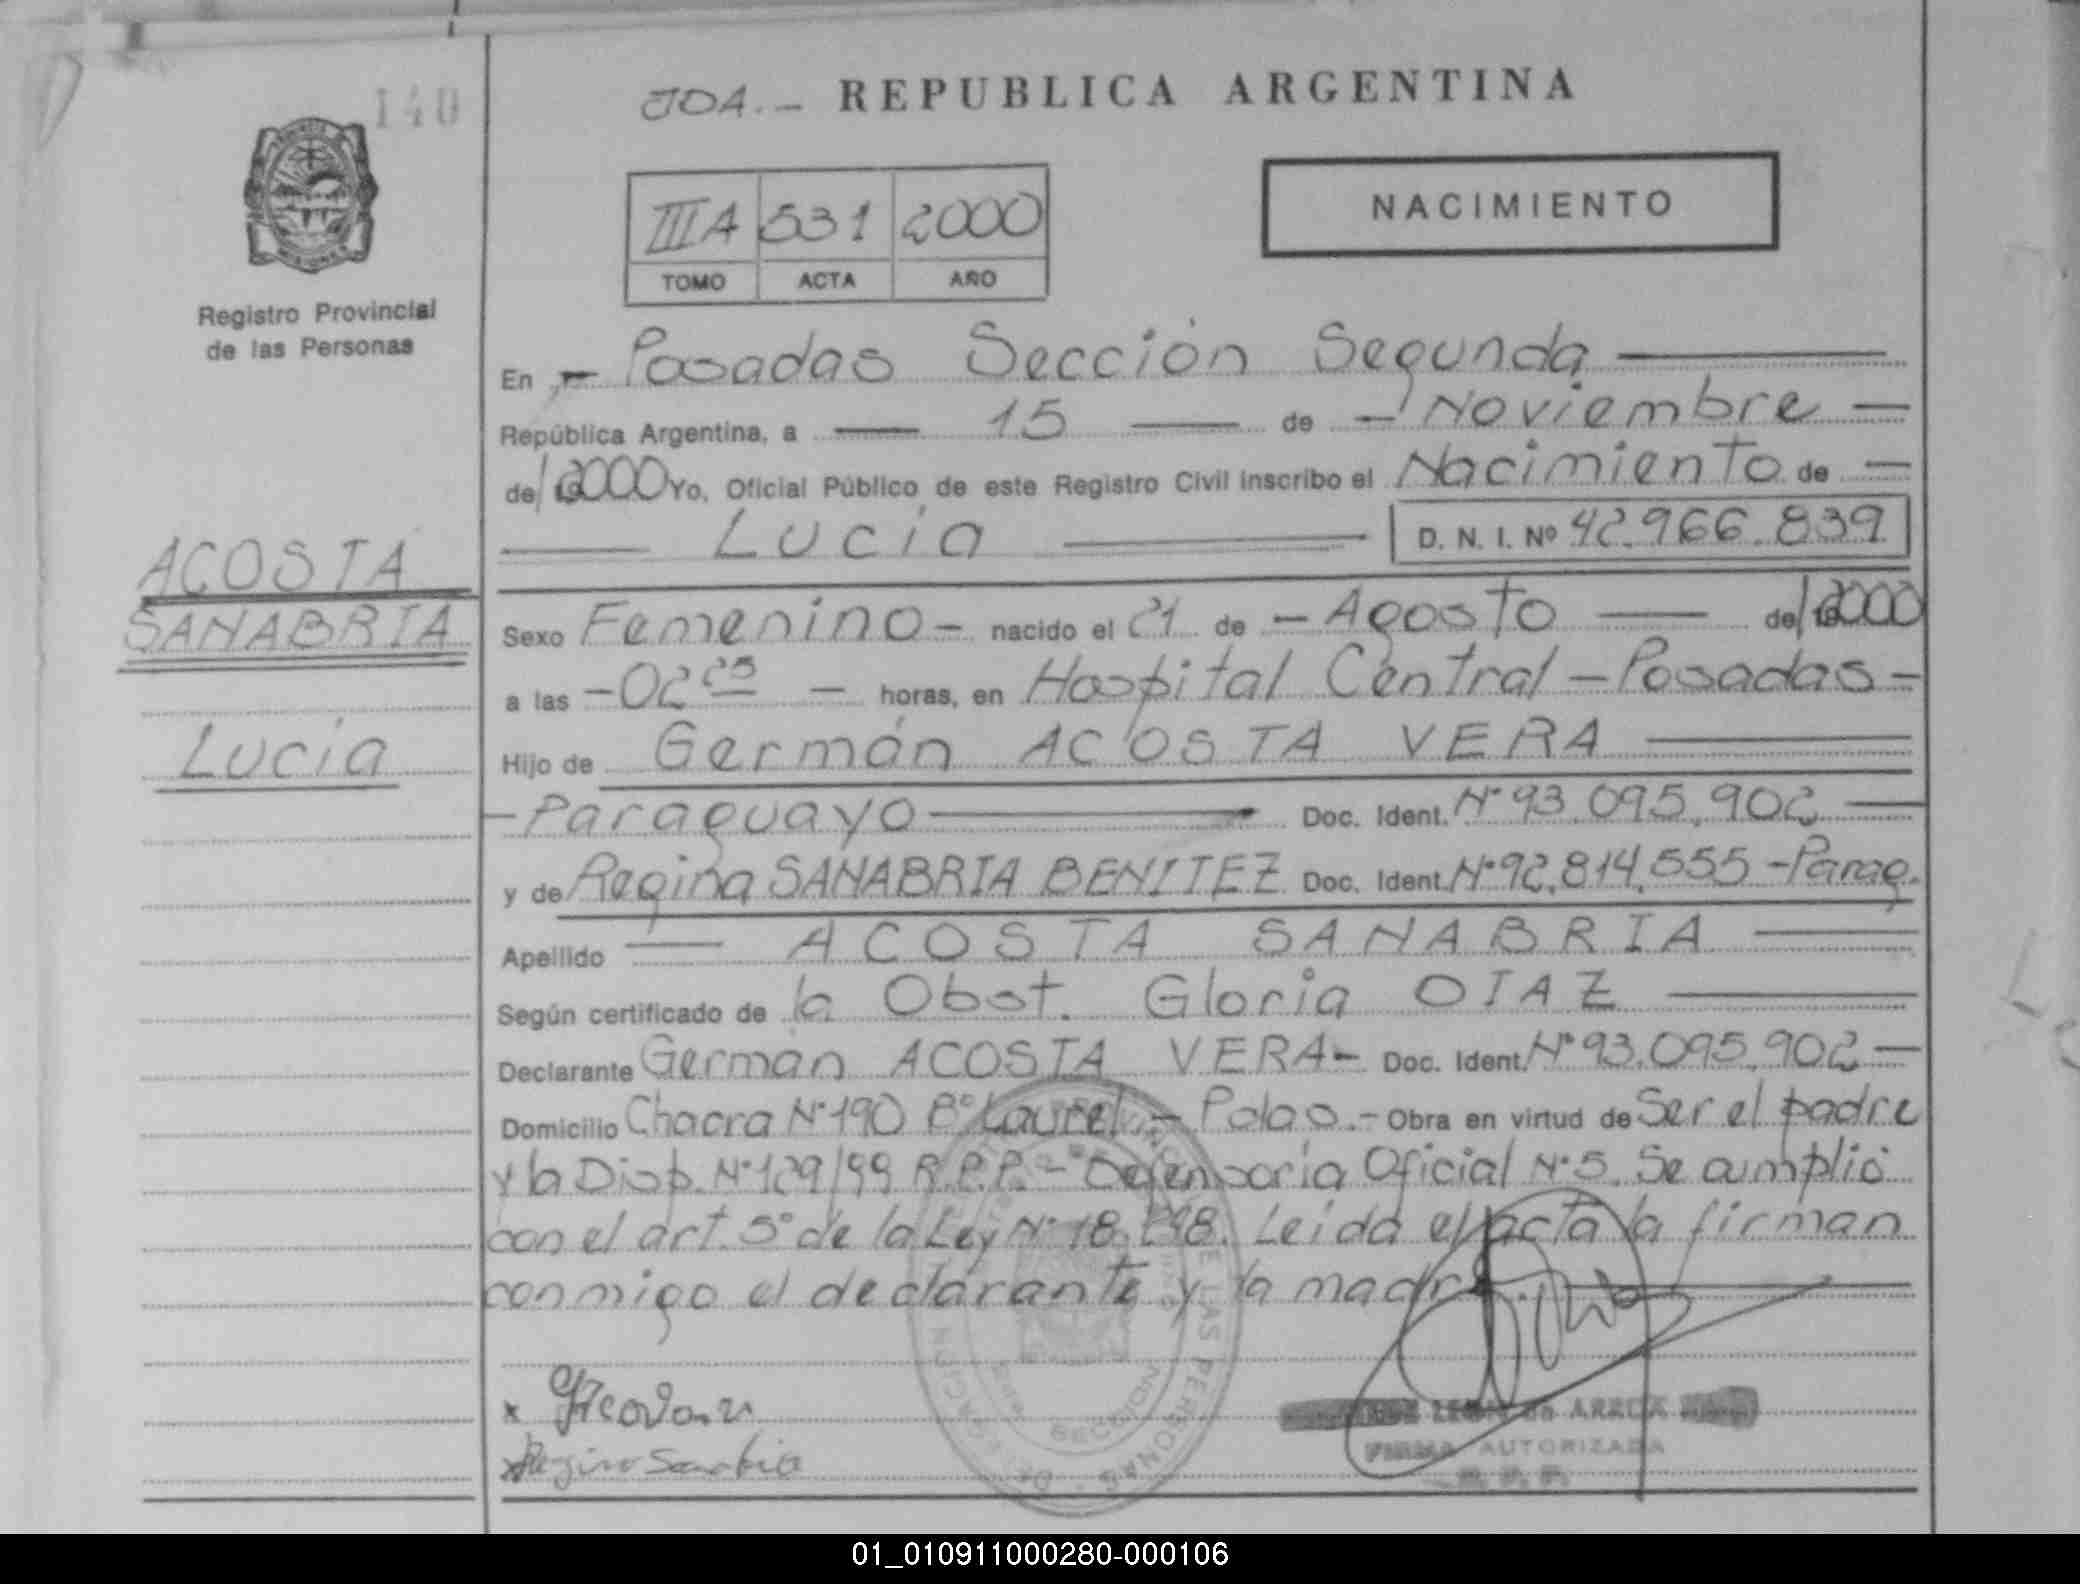 140
JOA.- REPUBLICA ARGENTINA
IIIA 531 2000
TOMO ACTA AÑO
NACIMIENTO
Registro Provincial
de las Personas
En - Posadas Sección Segunda
República Argentina, a 15 de - Noviembre -
de 2000 Yo, Oficial Público de este Registro Civil inscribo el Nacimiento de -
Lucía D. N. I. Nº 42.966.839
ACOSTA
SANABRIA
Lucía
Sexo Femenino - nacido el 21 de - Agosto - de 2000
a las - 02 25 - horas, en Hospital Central - Posadas -
Hijo de Germán ACOSTA VERA
- Paraguayo Doc. Ident. Nº 93.095.902
y de Regina SANABRIA BENITEZ Doc. Ident. Nº 92.814.555 - Parag.
Apellido ACOSTA SANABRIA
Según certificado de la Obst. Gloria DIAZ
Declarante Germán ACOSTA VERA - Doc. Ident. Nº 93.095.902 -
Domicilio Chacra Nº 190 Bº Laurel - Pdas. - Obra en virtud de Ser el padre
y la Disp. Nº 129/99 R.P.P. - Defensoría Oficial Nº 5. Se cumplió
con el art. 5º de la Ley Nº 18.248. Leída el acta la firman
conmigo el declarante y la madre.
x
x Regina Sanabria
FIRMA AUTORIZADA
R. P. P.
01_010911000280-000106